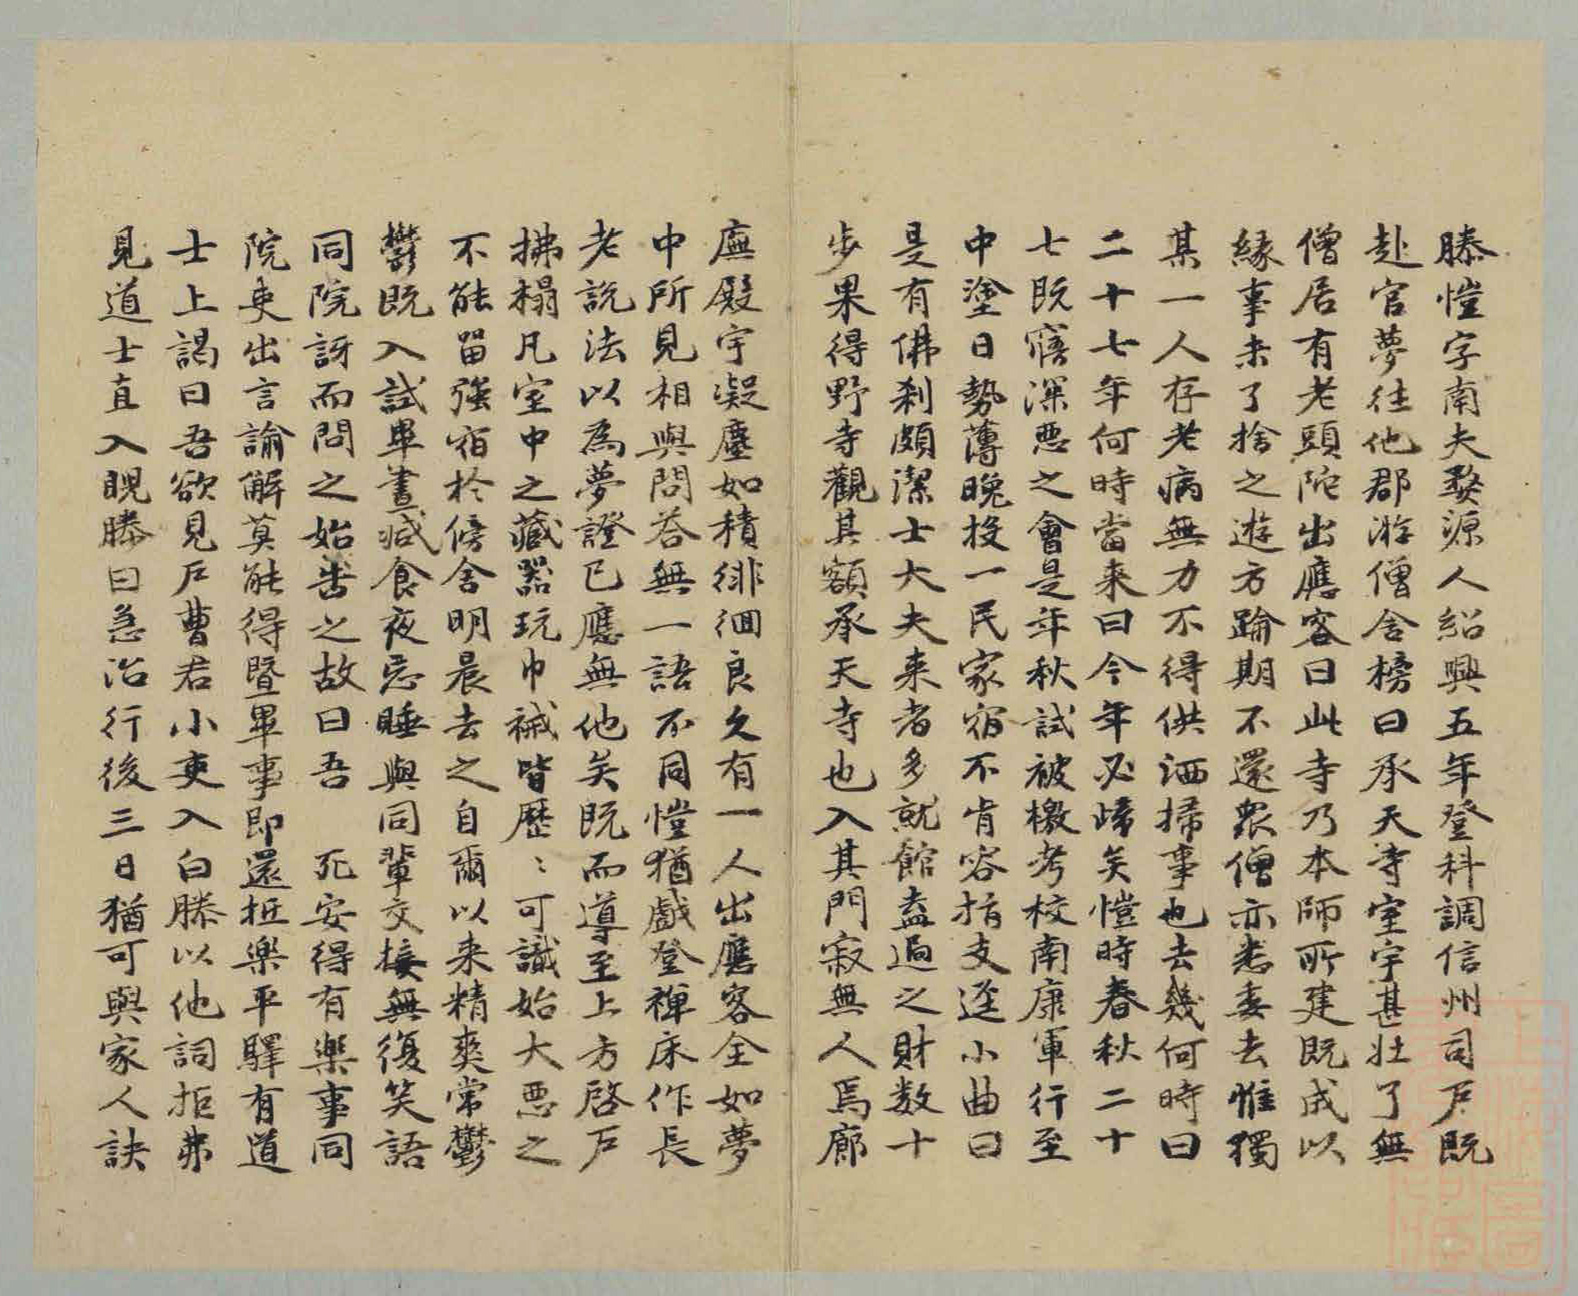 滕愷字南夫婺源人紹興五年登科調信州司戶既
赴官夢往他郡游僧舍榜曰承天寺室宇甚壯了無
僧居有老頭陀出應客曰此寺乃本師所建既成以
緣事未了捨之遊方踰期不還眾僧亦悉委去惟獨
某一人存老病無力不得供洒掃事也去幾何時曰
二十七年何時當来曰今年必歸矣愷時春秋二十
七既寤深惡之會是年秋試被檄考校南康軍行至
中塗日勢薄晚投一民家宿不肯容指支逕小曲曰
是有佛刹頗潔士大夫来者多就館盍過之財数十
步果得野寺觀其額承天寺也入其門寂無人焉廊
廡殿宇凝塵如積徘徊良久有一人出應客全如夢
中所見相與問荅無一語不同愷猶戲登禅床作長
老說法以為夢證已應無他矣既而導至上方啓戶
拂榻凡室中之藏器玩巾裓皆歷〻可識始大惡之
不能留强宿於傍舍明晨去之自爾以来精爽常鬱
鬱既入試畢晝減食夜忘睡與同輩交接無復笑語
同院訝而問之始啬之故曰吾 死安得有樂事同
院吏出言諭解莫能得暨畢事即還抵樂平驛有道
士上謁曰吾欲見戶曹君小吏入白滕以他詞拒弗
見道士直入睨滕曰急治行後三日猶可與家人訣